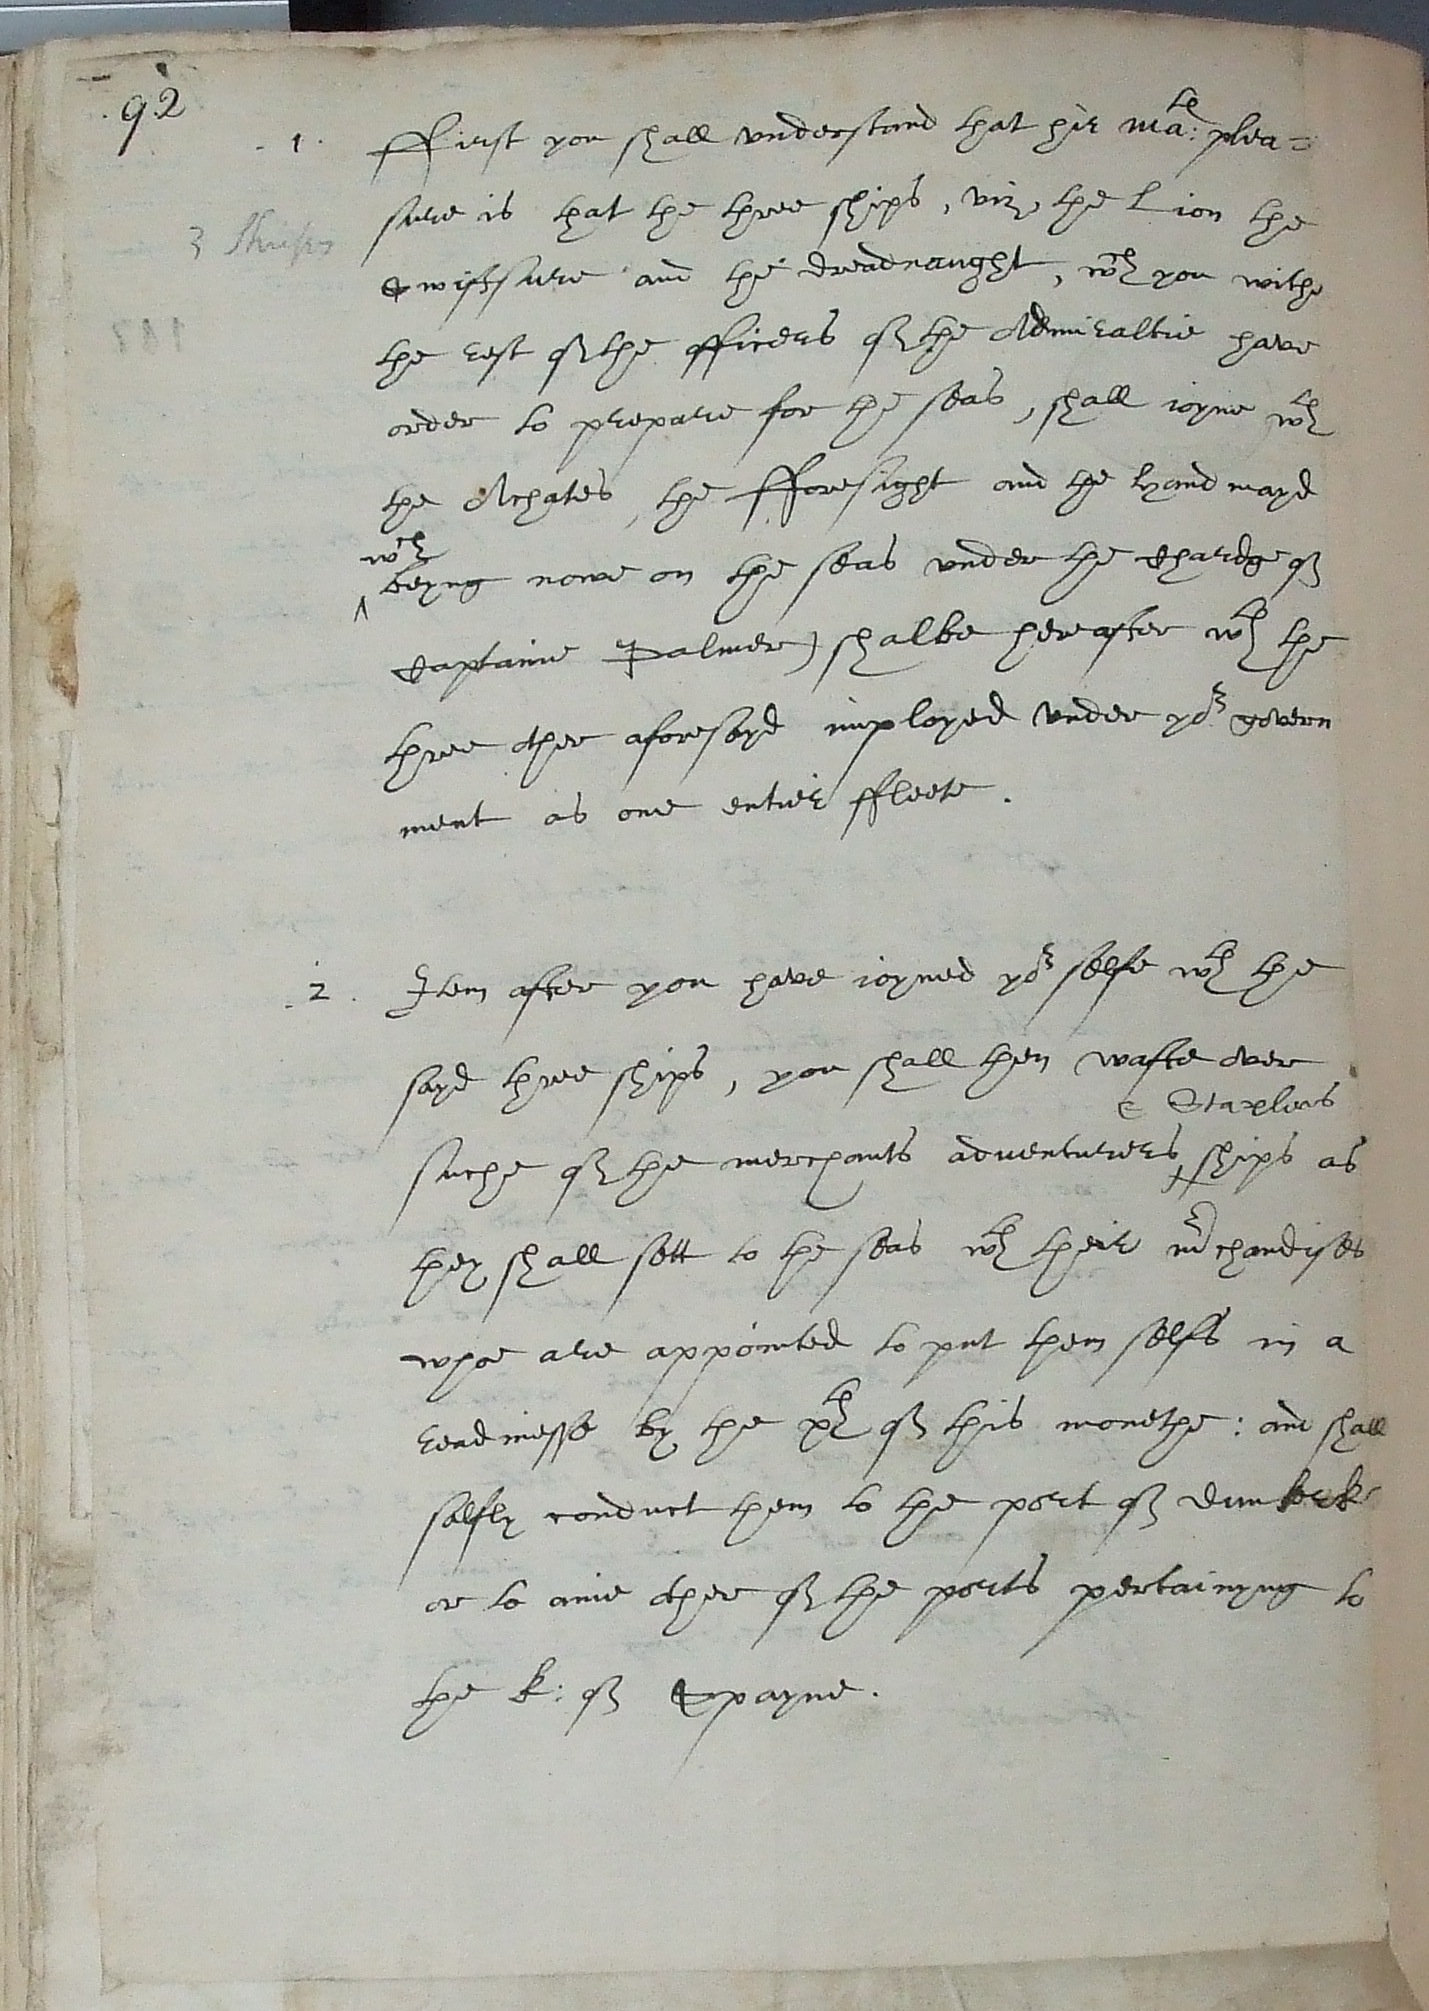 92
.1. ffirst you shall vnderstand that hir Ma:tie plea=
sure is that the three ships, viz, the Lion the
3 Shipps
Swiftsure and the dreadnaught, wch you withe
the rest of the officers of the Admiraltie have
order to prepare for the seas, shall ioyne wth
the Achates, the fforesight and the handmayd
wch
beyng nowe on the seas vnder the Chardge of
Captaine Palmer) shalbe hereafter wth the
three other aforesayd imployed vnder yor govern
ment as one entier ffleete.
.2. Item after you have ioyned yor selfe wth the
sayd three ships, you shall then wafte over
& Staplers
suche of the merchants adventurers ships as
they shall sett to the seas wth their mrchandises
whoe are appointed to put them selfs in a
readinesse by the xth of this monethe: and shall
safely conduct them to the port of Dunkerk
or to anie other of the ports pertainyng to
the k: of Spayne.